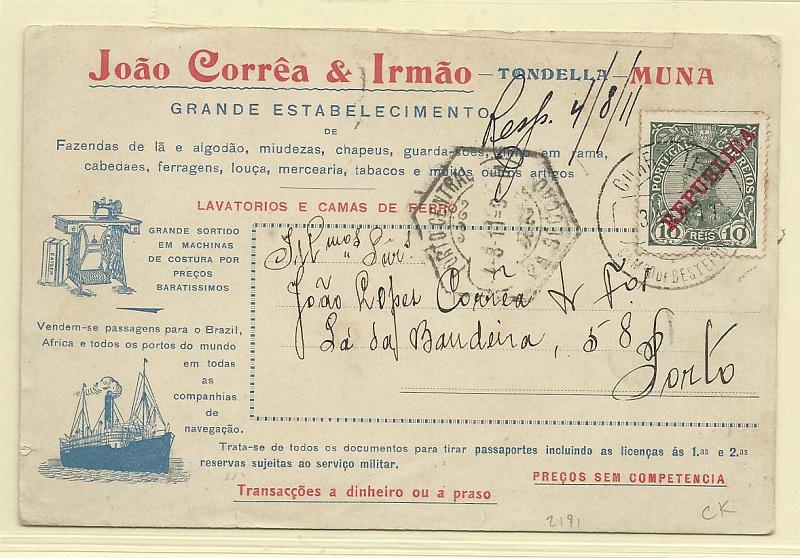 João Corrêa & Irmão — TONDELLA — MUNA
GRANDE ESTABELECIMENTO
DE
Fazendas de lã e algodão, miudezas, chapeus, guarda-soes, linho em rama,
cabedaes, ferragens, louça, mercearia, tabacos e muitos outros artigos
Resp. 4/8/11
PORTUGAL CORREIOS
REPUBLICA
10 REIS 10
LAVATORIOS E CAMAS DE FERRO
PORTO CENTRAL
GRANDE SORTIDO
EM MACHINAS
DE COSTURA POR
PREÇOS
BARATISSIMOS
Vendem-se passagens para o Brazil,
Africa e todos os portos do mundo
em todas
as
companhias
de
navegação.
Ill.mos Snrs.
João Lopes Corrêa & Fos
Sá da Bandeira, 58
Porto
Trata-se de todos os documentos para tirar passaportes incluindo as licenças ás 1.as e 2.as
reservas sujeitas ao serviço militar.
PREÇOS SEM COMPETENCIA
Transacções a dinheiro ou a praso
2191
CK